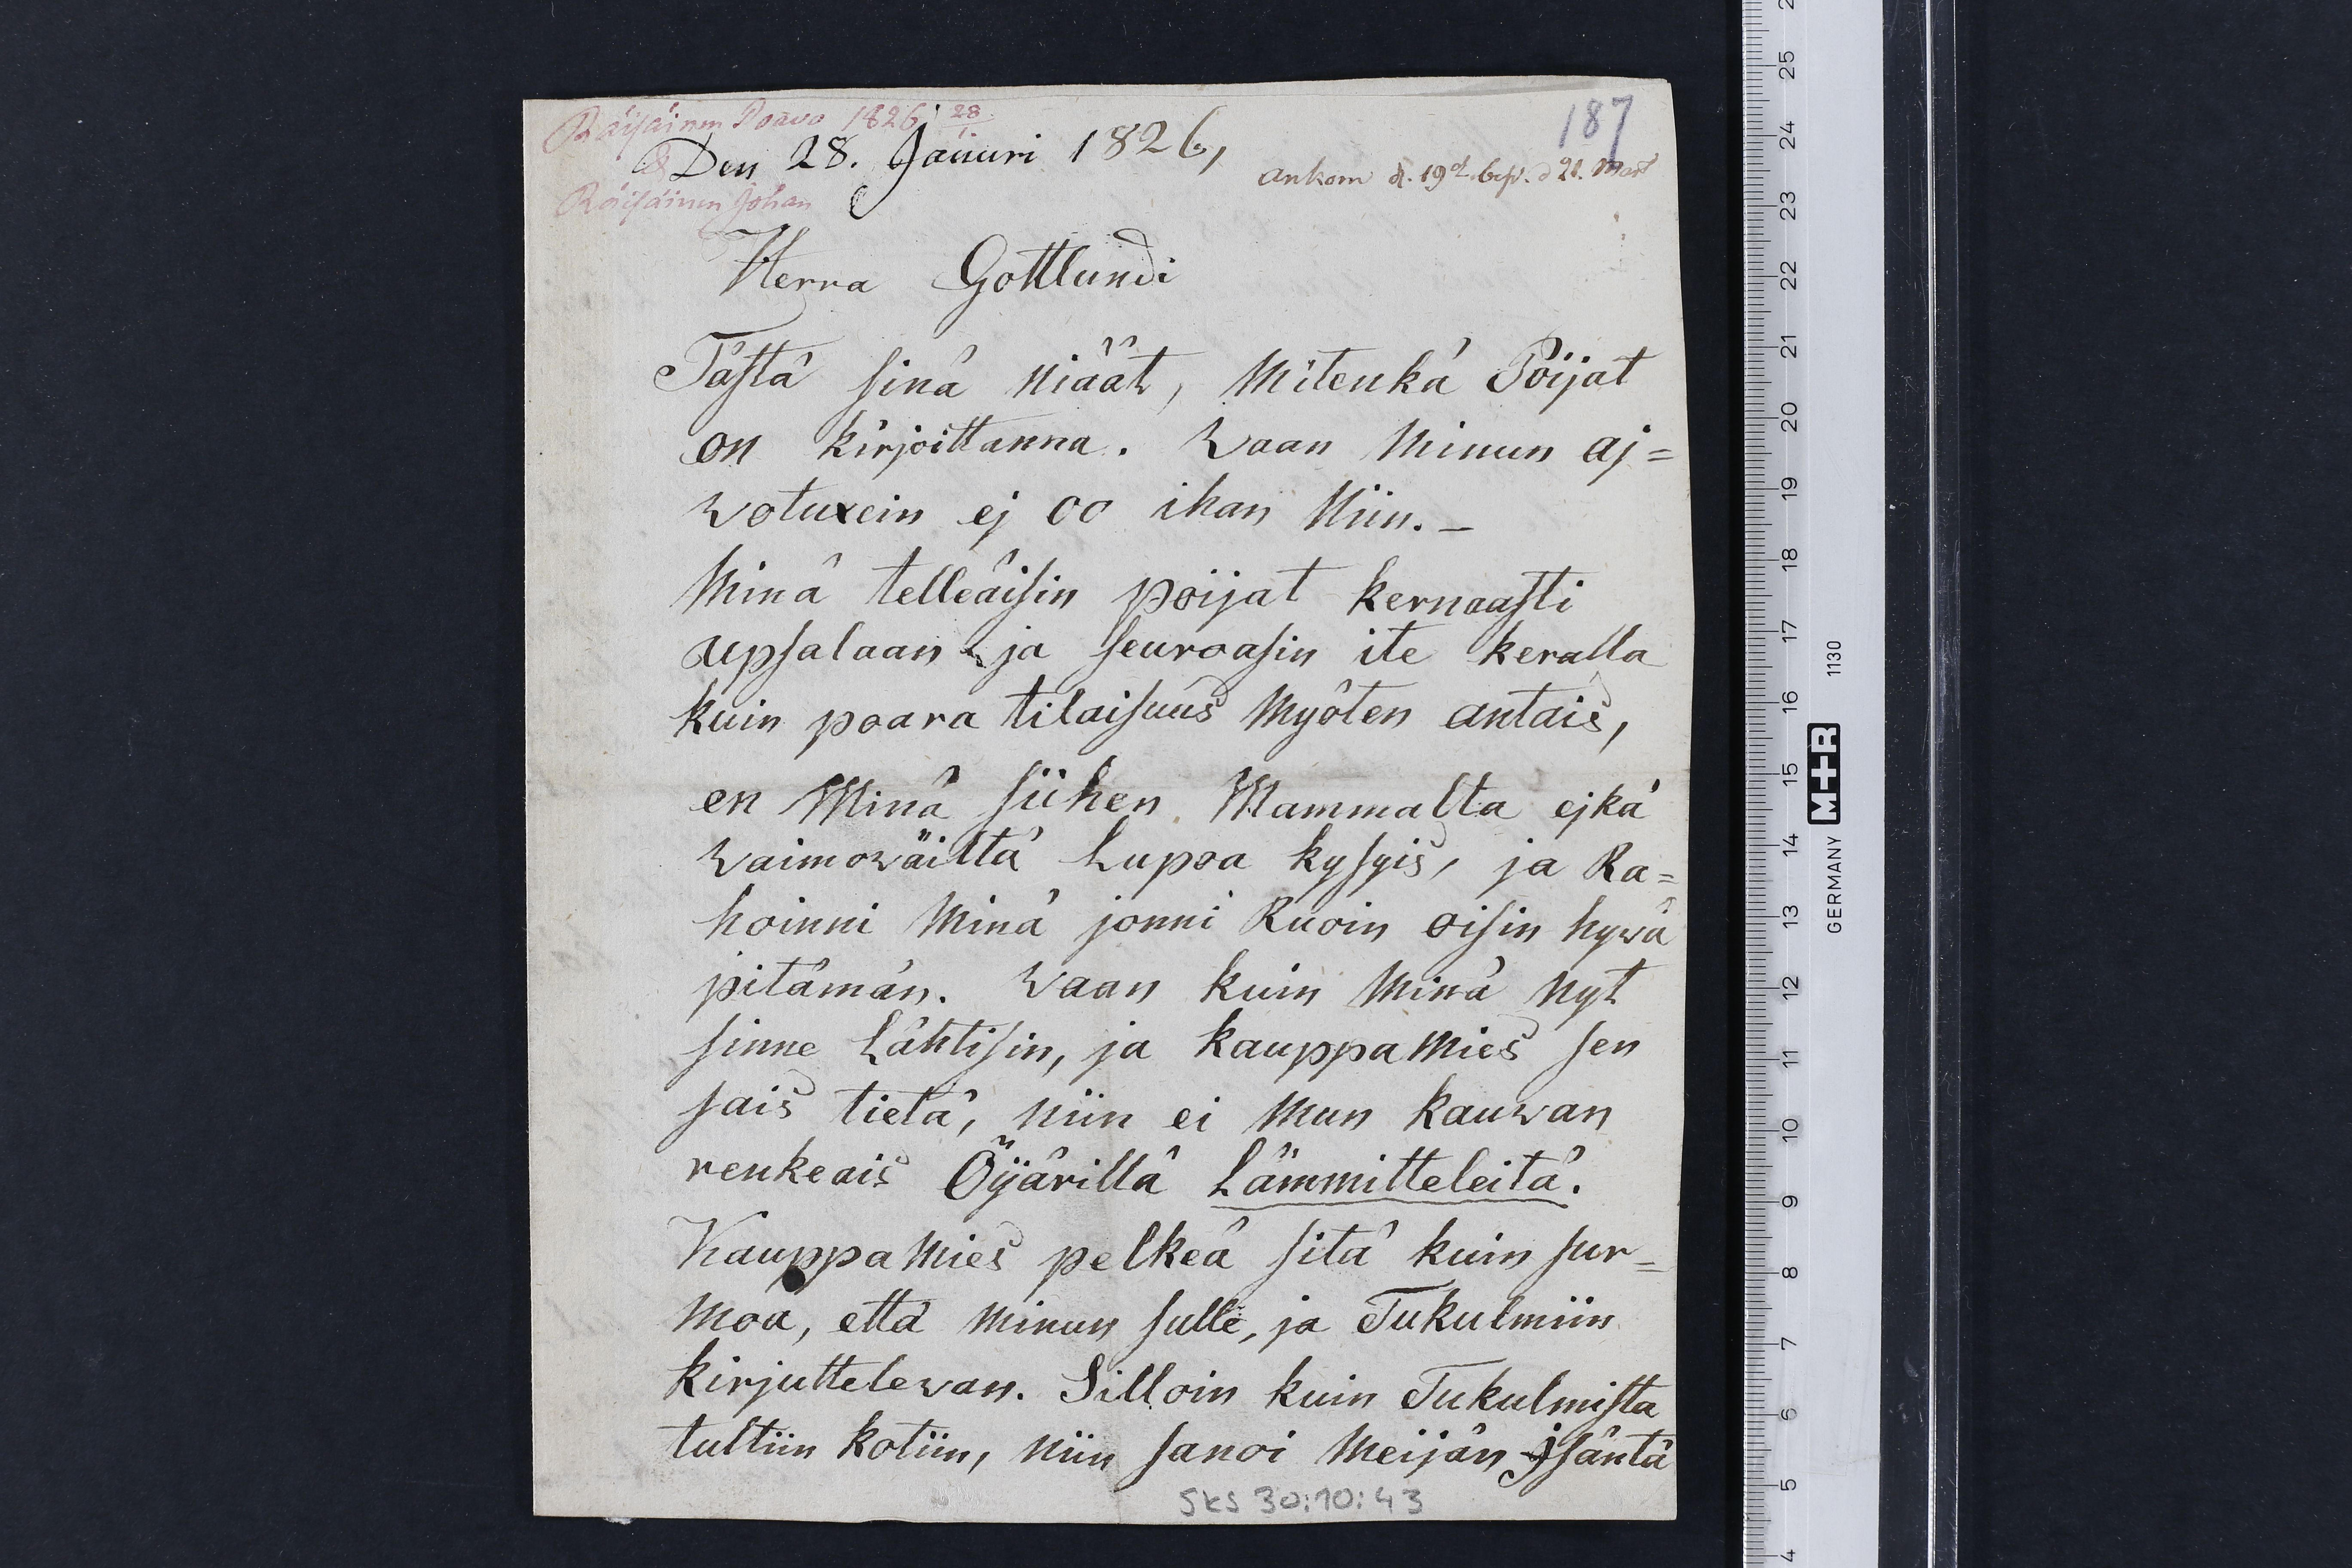 Räisäinen Poavo 1826 28
187
Den 28. Januri 1826,
ankom d. 19d besv. d 21. Mars
Räisäinen Johan
Herra Gottlundi
Tästä sinä niäät, Mitenkä Poijat
on kirjoittanna. Waan Minun aj=
wotuxein ej oo ihan Niin. –
Minä telleäisin poijat kernaasti
upsalaan ja seuroasin ite keralla
kuin poara tilaisuus Myöten antais,
en Minä siihen Mammalta ejkä
waimowäiltä Lupoa kysyis, ja Ra=
hoinni Minä jonni Ruoin oisin hywä
pitämän. Waan kuin Minä Nyt
sinne Lähtisin, ja kauppa Mies sen
sais tietä, niin ei Mun kauwan
renkeais Öijärillä Lämmitteleitä.
Kauppa Mies pelkeä sitä kuin sur=
Moa, että Minun sulle, ja Tukulmiin
kirjuttelewan. Silloin kuin Tukulmista
tultiin kotiin, Niin sanoi Meijän Jsäntä
SKS 30:10:43
25
24
23
22
21
20
19
18
17
16
15
14
13
12
11
10
9
8
7
6
5
4
GERMANY M+R 1130